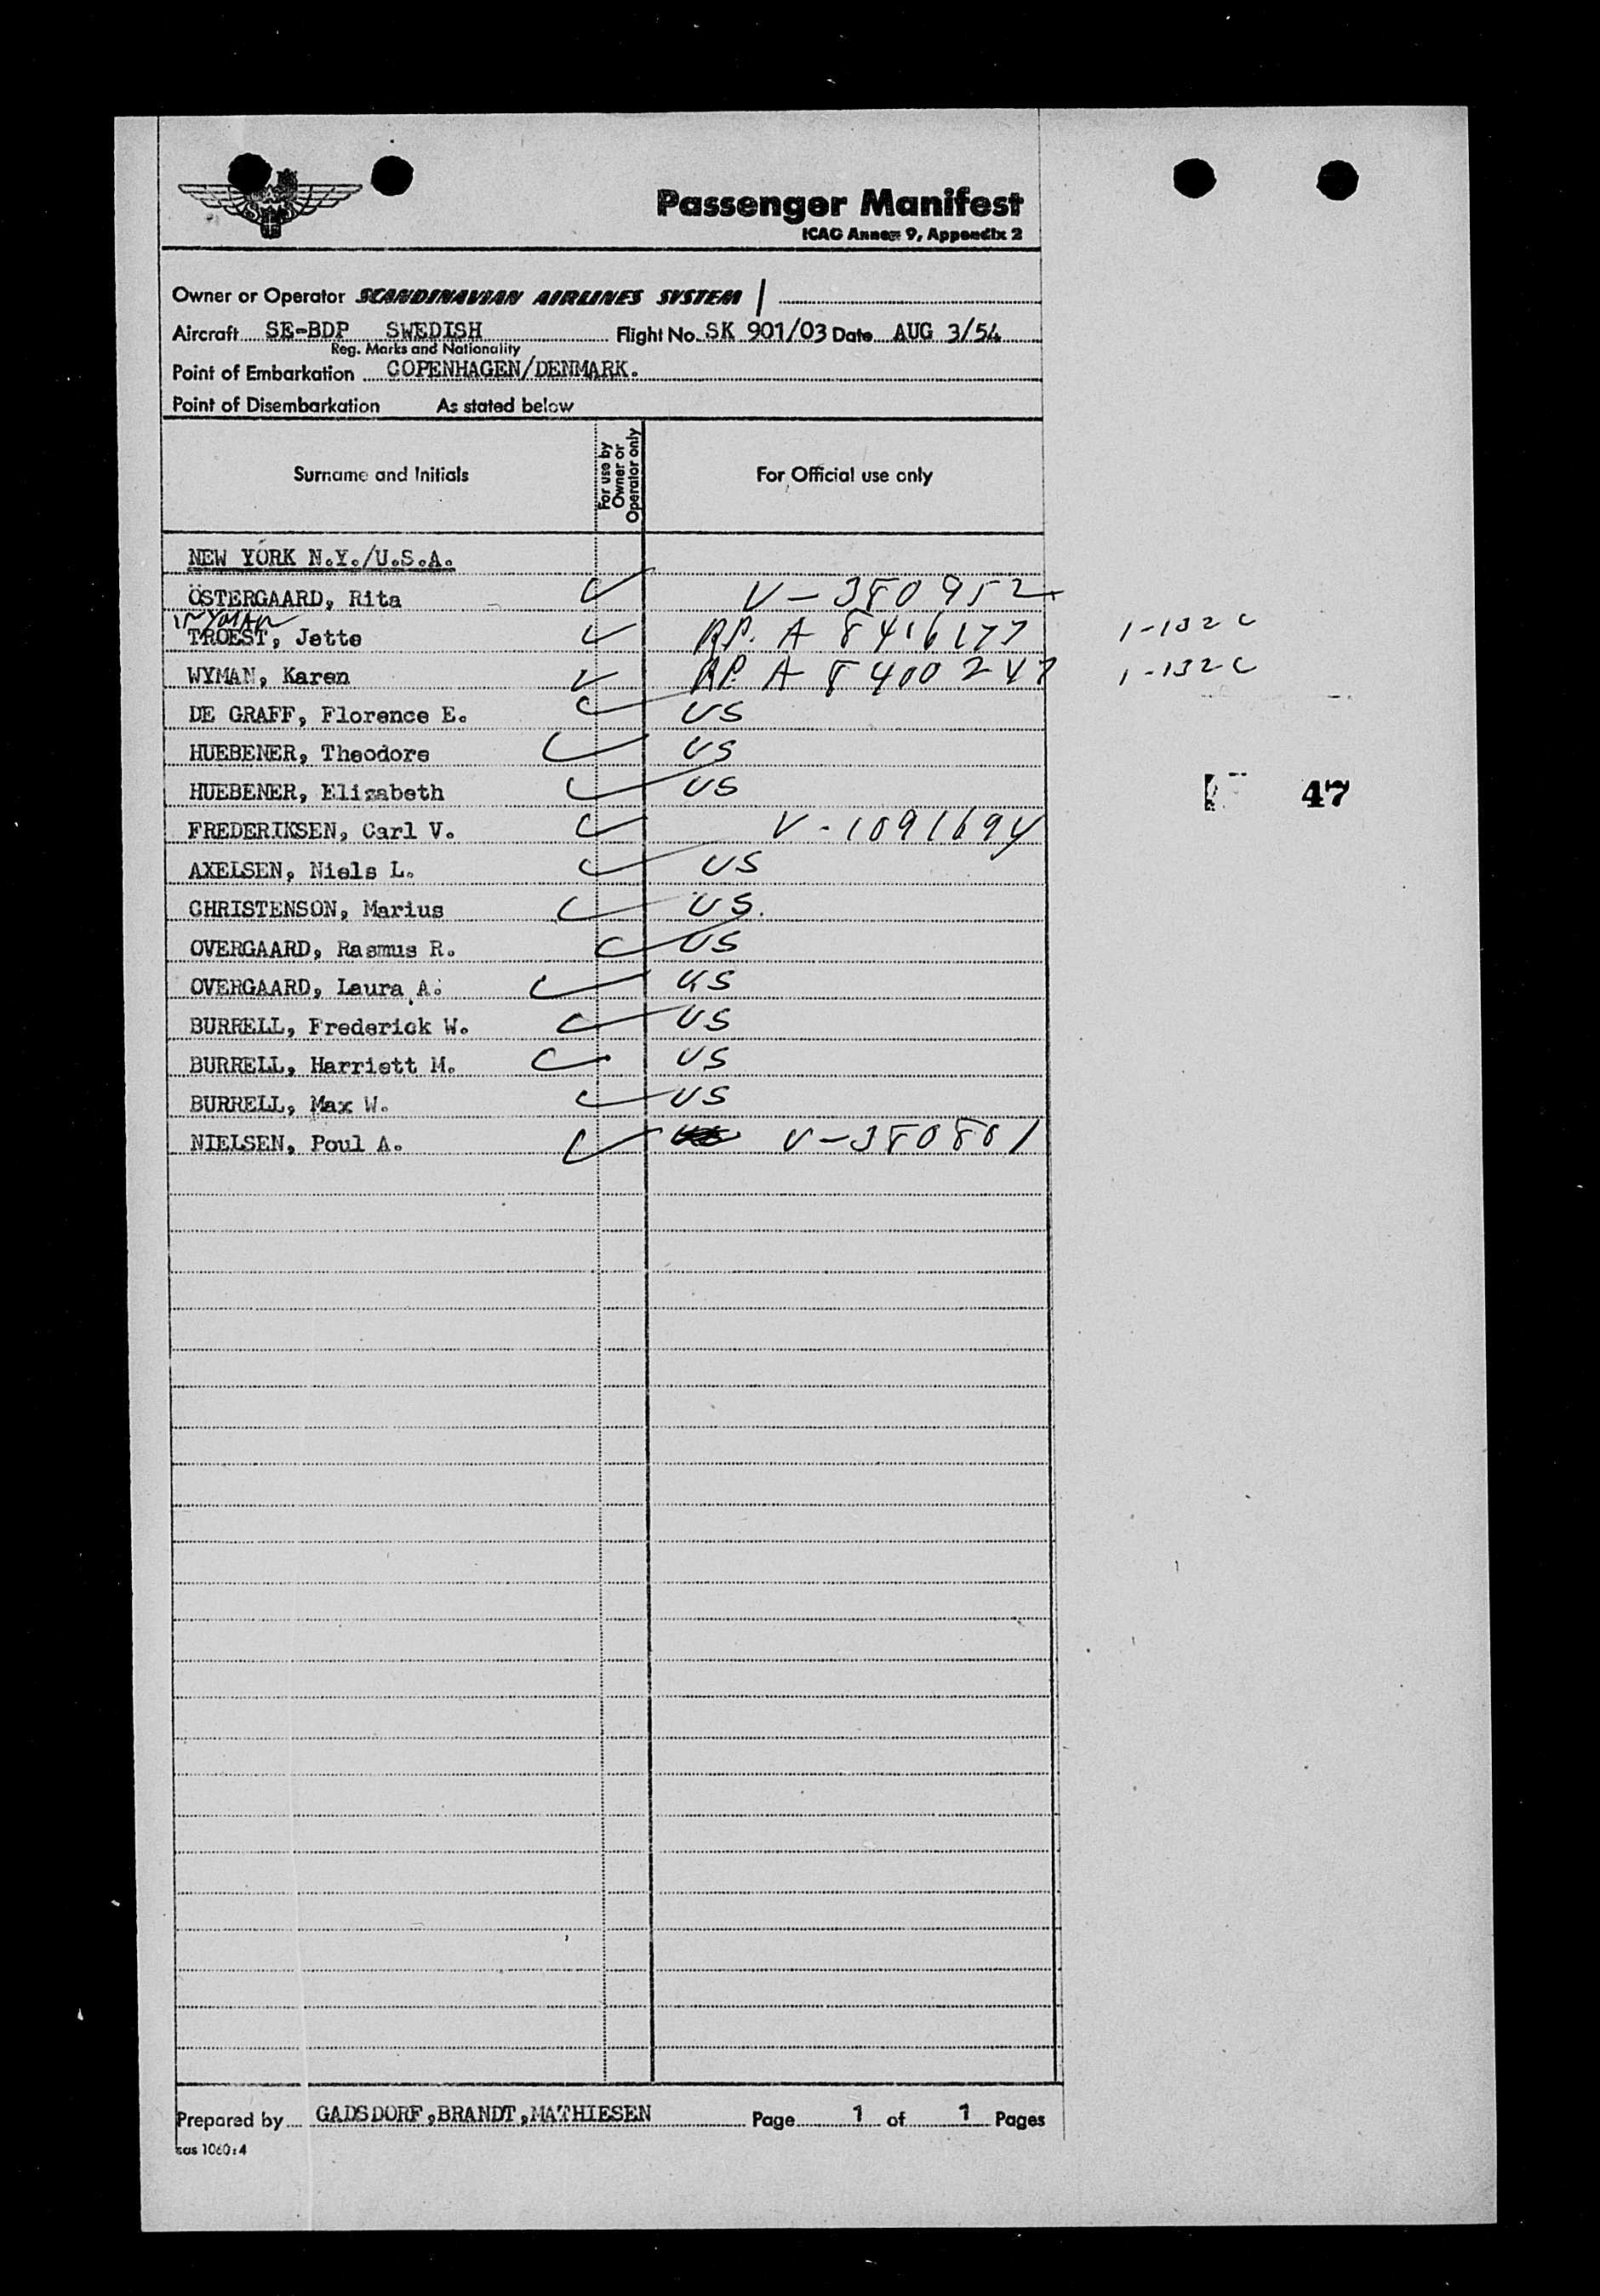 SAS
Passenger Manifest
ICAO Annex 9, Appendix 2
Owner or Operator SCANDINAVIAN AIRLINES SYSTEM /
Aircraft SE-BDP SWEDISH Flight No. SK 901/03 Date AUG 3/54
Reg. Marks and Nationality
Point of Embarkation COPENHAGEN/DENMARK.
Point of Disembarkation As stated below
Surname and Initials For use by Owner or Operator only For Official use only
NEW YORK N.Y./U.S.A.
ÖSTERGAARD, Rita ✓ V-380952
WYMAN
TROEST, Jette ✓ RP. A 8416177 1-132 C
WYMAN, Karen ✓ RP. A 8400247 1-132 C
DE GRAFF, Florence E. ✓ US
HUEBENER, Theodore ✓ US
HUEBENER, Elizabeth ✓ US
47
FREDERIKSEN, Carl V. ✓ V-1091694
AXELSEN, Niels L. ✓ US
CHRISTENSON, Marius ✓ US.
OVERGAARD, Rasmus R. ✓ US
OVERGAARD, Laura A. ✓ US
BURRELL, Frederick W. ✓ US
BURRELL, Harriett M. ✓ US
BURRELL, Max W. ✓ US
NIELSEN, Poul A. ✓ V-380801
Prepared by GADSDORF,BRANDT,MATHIESEN Page 1 of 1 Pages
sas 1060:4